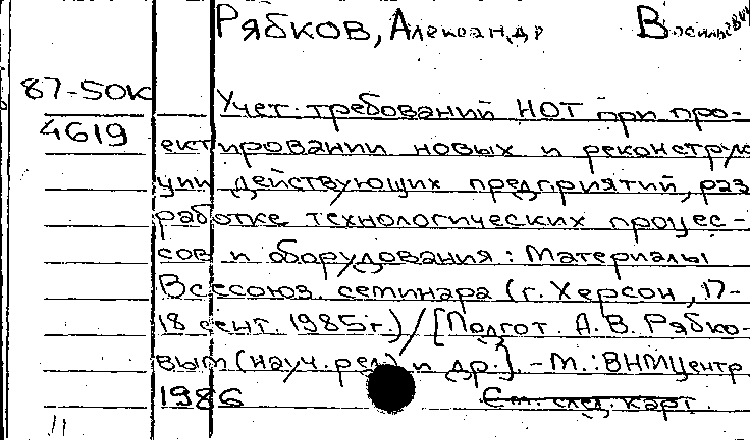 Рябков, Александр Васильевич
87-50к
4619
Учет требований НОТ при про-
ектировании новых и реконструк
ции действующих предприятий, раз
работке технологических процес-
сов и оборудования: Материалы
Всесоюз. семинара (г. Херсон, 17-
18 сент. 1985г.)/[Подгот. А.В. Рябко-
вым (науч.ред.) и др.]. - М.: ВНМЦентр
1986
См. след. карт.
11